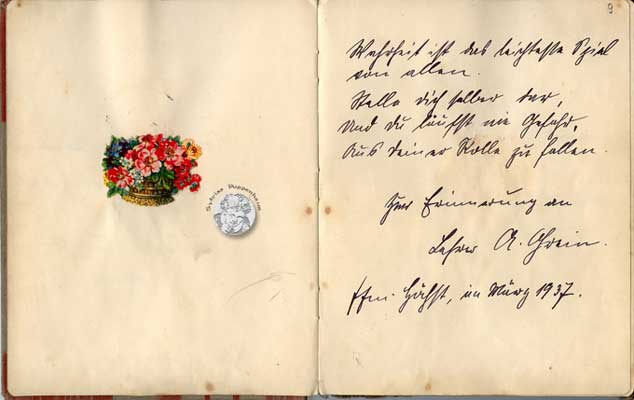 Sabrina Puppenheim
9
Wahrheit ist das leichteste Spiel
von allen.
Stelle dich selber dar,
Und du läufst nie Gefahr,
Aus deiner Rolle zu fallen.
Zur Erinnerung an
Lehrer A.
Ffm. Höchst, im März 1937.